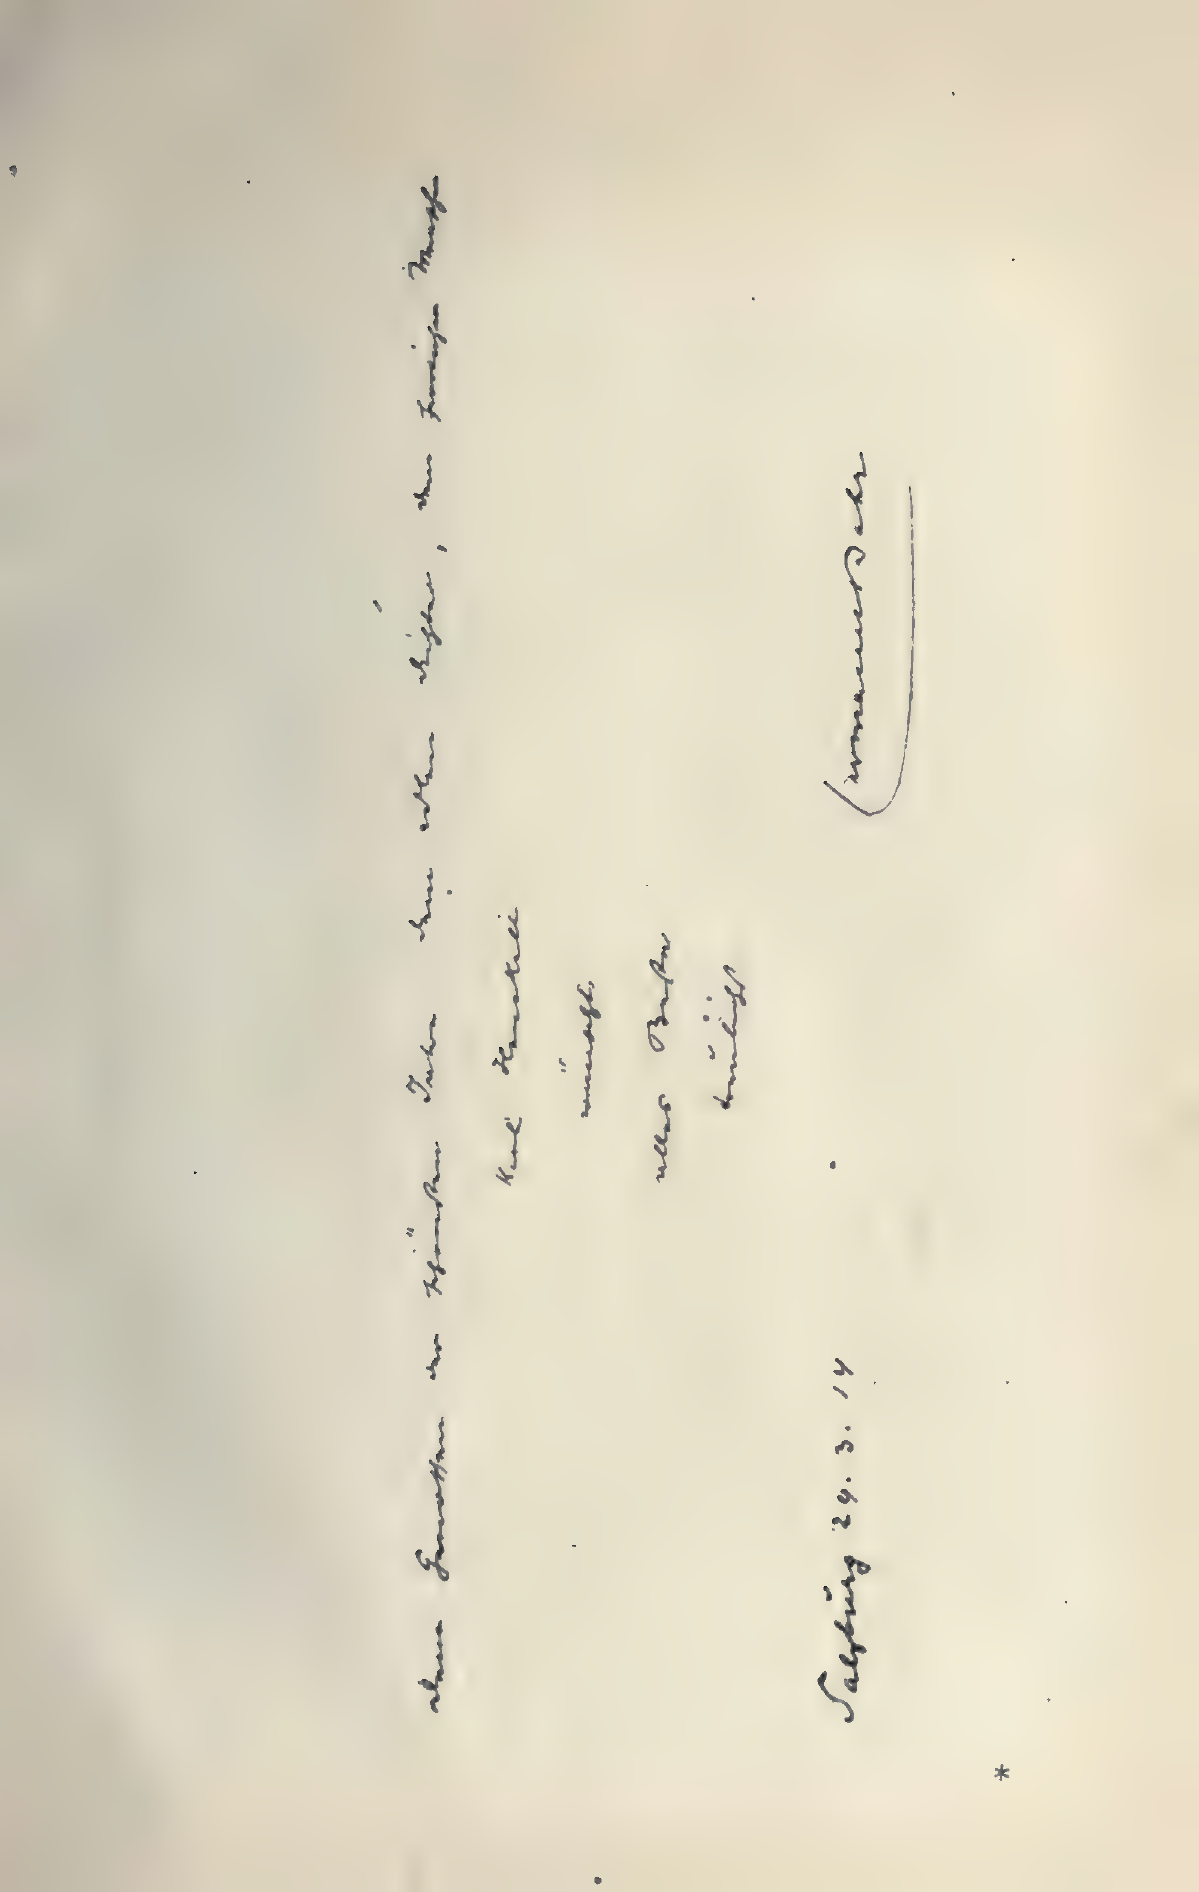 dem Genossen der schönsten Jahre dem edlen Dichter, dem freien Mensch
Karl Henckell
wünscht
alles Beste
herzlichst
Salzburg 24. 3. 14
Hermann Bahr
*